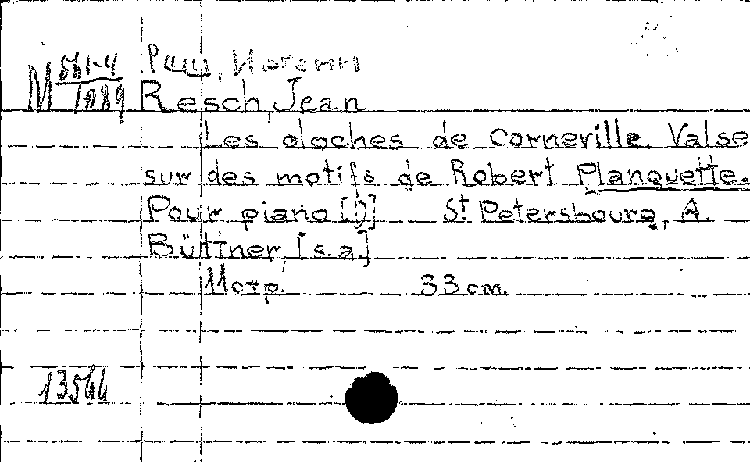 M 561-4
1089
Resch, Jean
Les cloches de Corneville. Valse
sur des motifs de Robert Planquette.
Pour piano
St Petersbourg, A.
Büttner, [s.a.]
11 стр. 33 см.